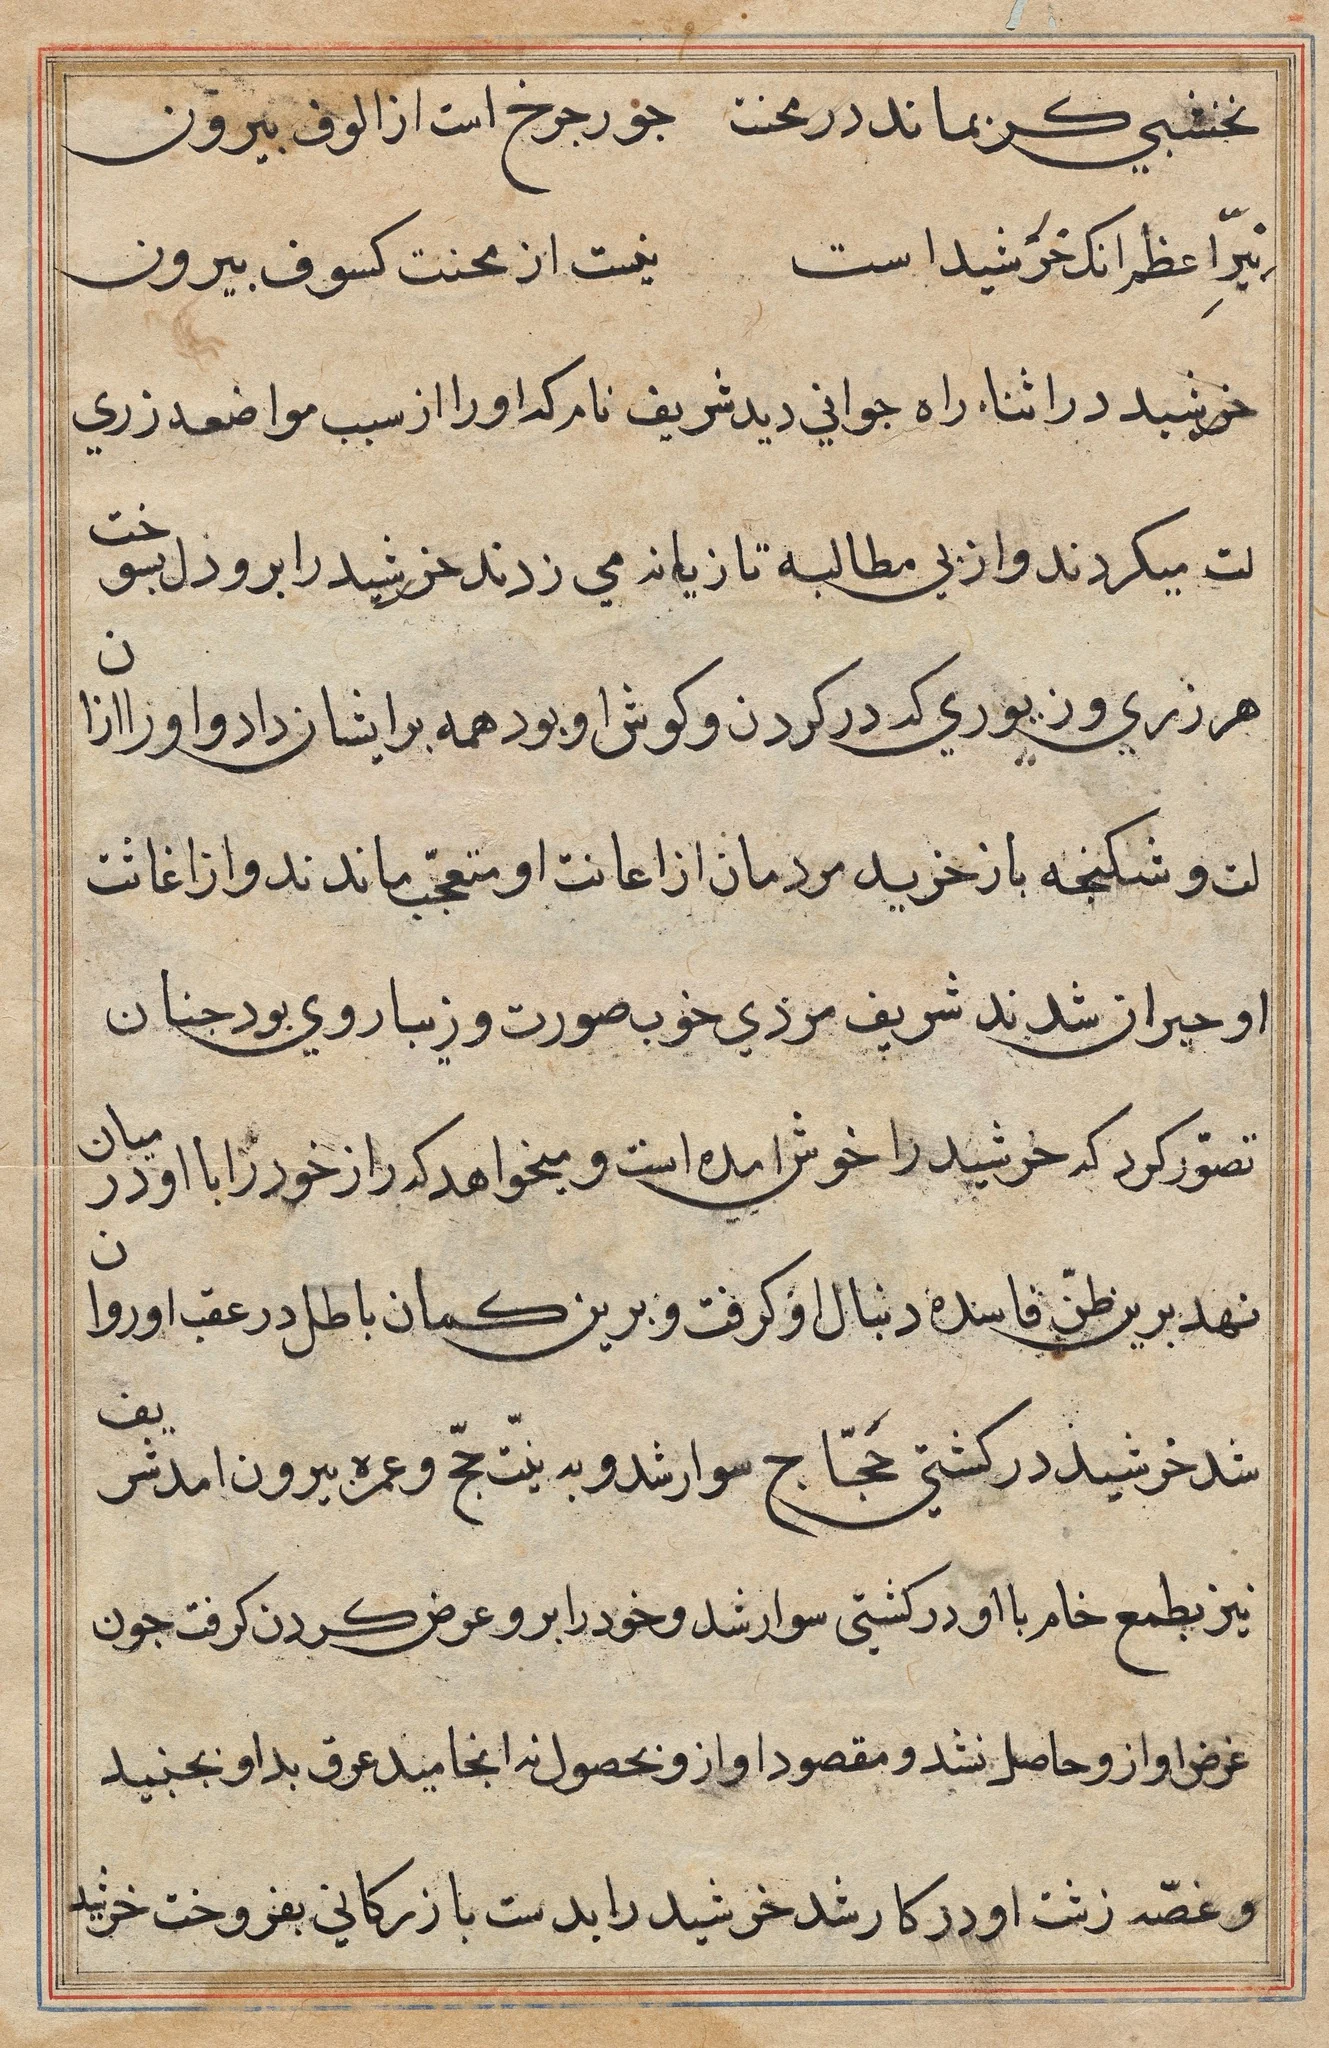 نخشبي كس نماند در محنت جور جرخ است از الوف بيرون
نيّرِ اعظم انك خُرشيد است نيست از محنت كسوف بيرون
خرشيد در اثناء راه جواني ديد شريف نام كه او را از سبب مواضعه زري
لت ميكردند و از بي مطالبه تازيانه مي زدند خرشيد را برو دل بسوخت
هر زري و زيوري كه در كردن و كوش او بود همه بدايشان داد و او را ازان
لت و شكنجه باز خريد مردمان از اعانت او متعجّب ماندند و از اغاثت
او حيران شدند شريف مردي خوب صورت و زيبا روي بود جنان
تصوّر كرد كه خرشيد را خوش امده است و ميخواهد كه راز خود را با او در ميان
نهد برين ظنّ فاسده دنبال او كرفت و برين كمان باطل در عقب او روان
شد خرشيد در كشتي حُجّاج سوار شد و به نيّت حجّ و عمره بيرون امد شريف
نيز بطمع خام با او در كشتي سوار شد و خود را برو عرض كردن كرفت جون
غرض او ازو حاصل نشد و مقصود او ازو بحصول نه انجاميد عرق بد او بجنبيد
و غصّه زشت او در كار شد خرشيد را بدست بازركاني بفروخت خرشيد